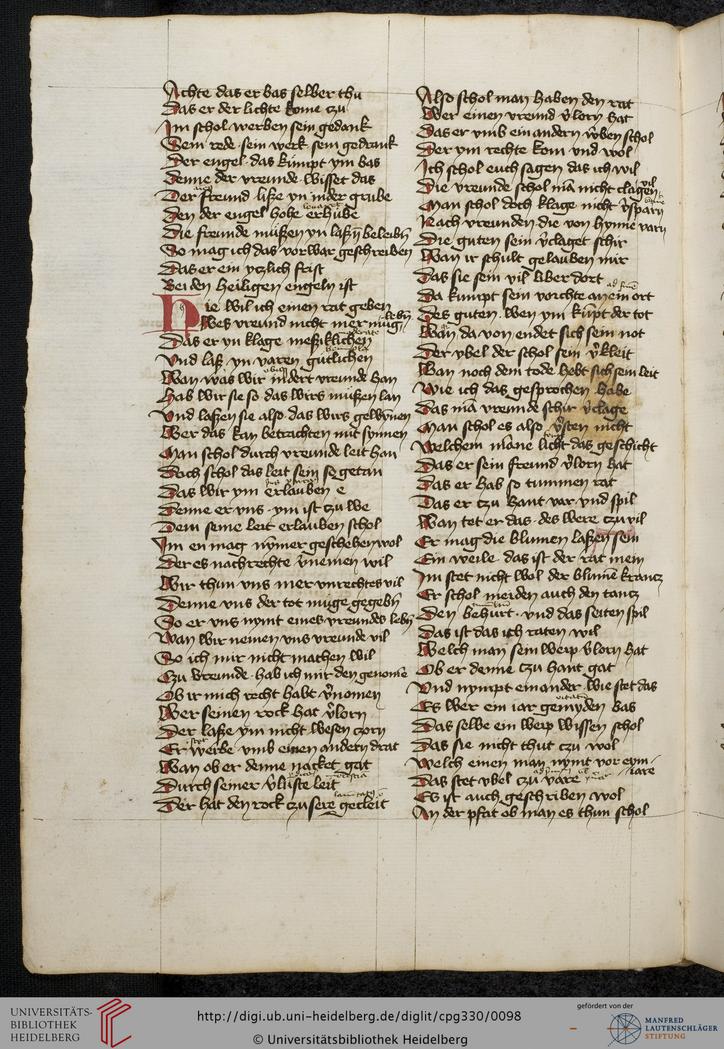 Achte das er bas selber thu
Das er der lichte kome czu
Im schol werben sein gedank
Sein rede sein werk sein gedrank
Der engel das kumpt ym bas
denne der vreunde wisset das
Der freund liße yn in der grube
Den der engel hohe erhube
Die freunde müßen yn laßn beleibn
So mag ich das vorwar geschreiben
Das er ein yczlich frist
Bei den heiligen engeln ist
Hie wil ich einen rat geben
Wes vreund nicht mer mug lebn
Das er yn klage meßiklichen
Vnd laß yn varen gutlichen
Wan was wir indert vreunde han
Hab wir sie so das wirs müßen lan
Vnd laßen sie also das wirs gewynnen
Wer das kan betrachten mit synnen
Man schol durch vreunde leit han
Doch schol das leit sein so getan
Das wir ym erlauben e
Denne er vns ym ist czu we
Dem seine leit erlauben schol
Im en mag nymer geschehen wol
Der es nach rechte v̉nemen wil
Wir thun vns mer vnrechtes vil
Denne vns der tot müge gegebn
So er vns nymt eines vreundes lebn
Wan wir nemen vns vreunde vil
So ich mir nicht machen wil
Czu vreunde hab ich mir den genome
Ob ir mich recht habt v̉nomen
Wer seinen rock hat v̉lorn
Der laße ym nicht wesen zorn
Er werbe vmb einen andern drat
Wan ob er denne nacket gat
Durch seiner v̉luste leit
Der hat den rock czu sere gecleit
Also schol man haben den rat
Wer einen vreund v̉lorn hat
Das er vmb ein andern w̉ben schol
Der ym rechte kom vnd wol
Ich schol euch sagen das ich wil
Die vreunde schol mā nicht clagen vil
Man schol doch klage nicht v̉sparn
Nach vreunden die von hynne varn
Die guten sein v̉claget schir
Wan ir schult gelauben mir
Das sie sein vil liber dort
Da kumpt sein vorchte an ein ort
Des guten wen ym kūpt der tot
Wan da von endet sich sein not
Der vbel der schol sein v̉kleit
Wan noch dem tode hebt sich sein leit
Wie ich das gesprochen habe
Das mā vreunde schir v̉clage
Man schol es also v̉sten nicht
Welchem mane licht das geschicht
Das er sein freund v̉lorn hat
Das er hab so tummen rat
Das er czu hant var vnd spil
Wan tet er das des were czu vil
Er mag die blumen laßen sein
Ein weile das ist der rat mein
Im stet nicht wol der blumē kranz
Er schol meiden auch den tancz
Den behurt vnd das seiten spil
Das ist das ich raten wil
Welch man sein weip v̉lorn hat
Ob er denne czu hant gat
Vnd nympt ein ander wie stet das
Es wer ein iar gemyden bas
Das selbe ein weip wissen schol
Das sie nicht thut czu wol
Welch einen man nymt vor eym iare
Das stet vbel czu vare
Es ist auch geschriben wol
An der pfat ob man es thun schol
UNIVERSITÄTS-
BIBLIOTHEK
HEIDELBERG
http://digi.ub.uni-heidelberg.de/diglit/cpg330/0098
© Universitätsbibliothek Heidelberg
gefördert von der
MANFRED
LAUTENSCHLÄGER
STIFTUNG